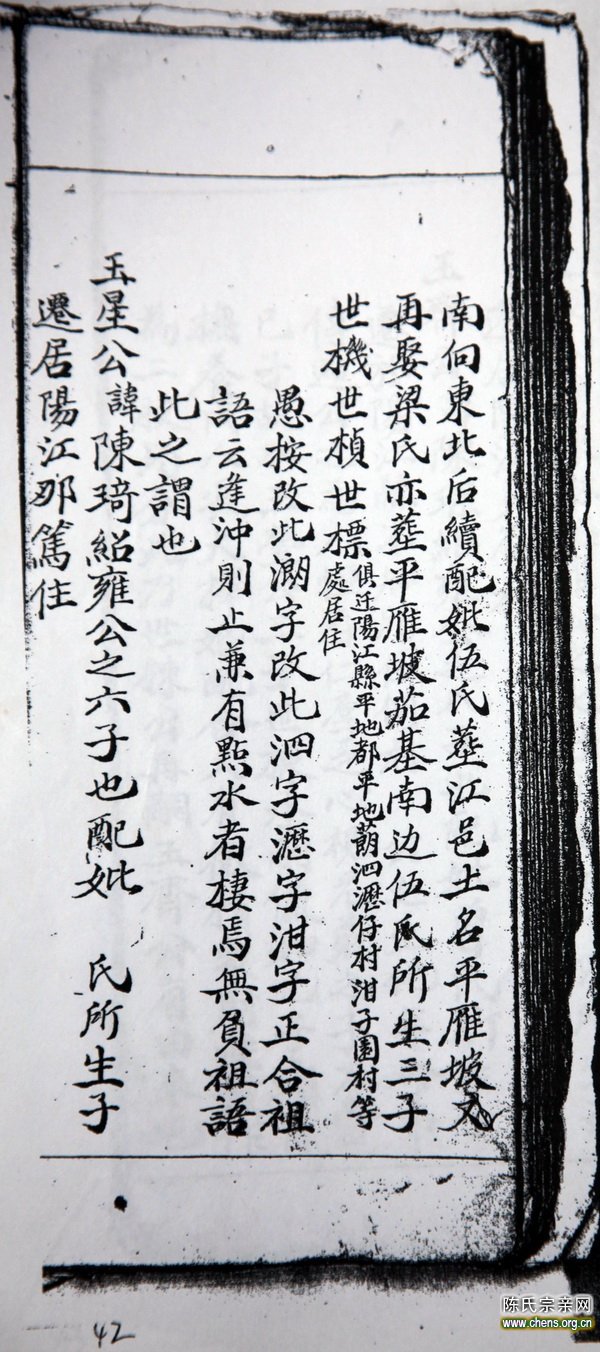 南向東北后續配妣伍氏塟江邑土名平雁坡又
再娶梁氏亦塟平雁坡茄基南边伍氏所生三子
世機世楨世標俱迁陽江縣平地都平地蓢泗瀝仔村泔子園村等
處居住
愚按改此蓢字改此泗字瀝字泔字正合祖
語云逢沖則止兼有點水者棲焉無負祖語
此之謂也
玉星公諱陳琦紹雍公之六子也配妣 氏所生子
遷居陽江那篤住
42
陈氏宗亲网
www.chens.org.cn